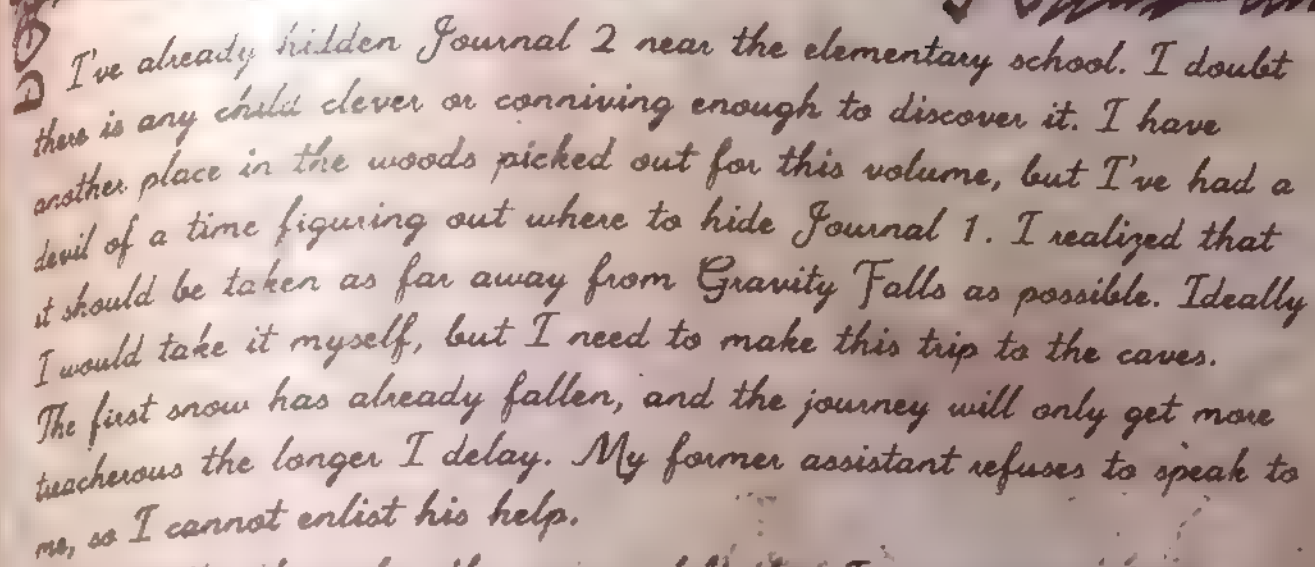 I've already hidden Journal 2 near the elementary school. I doubt
there is any child clever or conniving enough to discover it. I have
another place in the woods picked out for this volume, but I've had a
devil of a time figuring out where to hide Journal 1. I realized that
it should be taken as far away from Gravity Falls as possible. Ideally
I would take it myself, but I need to make this trip to the caves.
The first snow has already fallen, and the journey will only get more
treacherous the longer I delay. My former assistant refuses to speak to
me, so I cannot enlist his help.